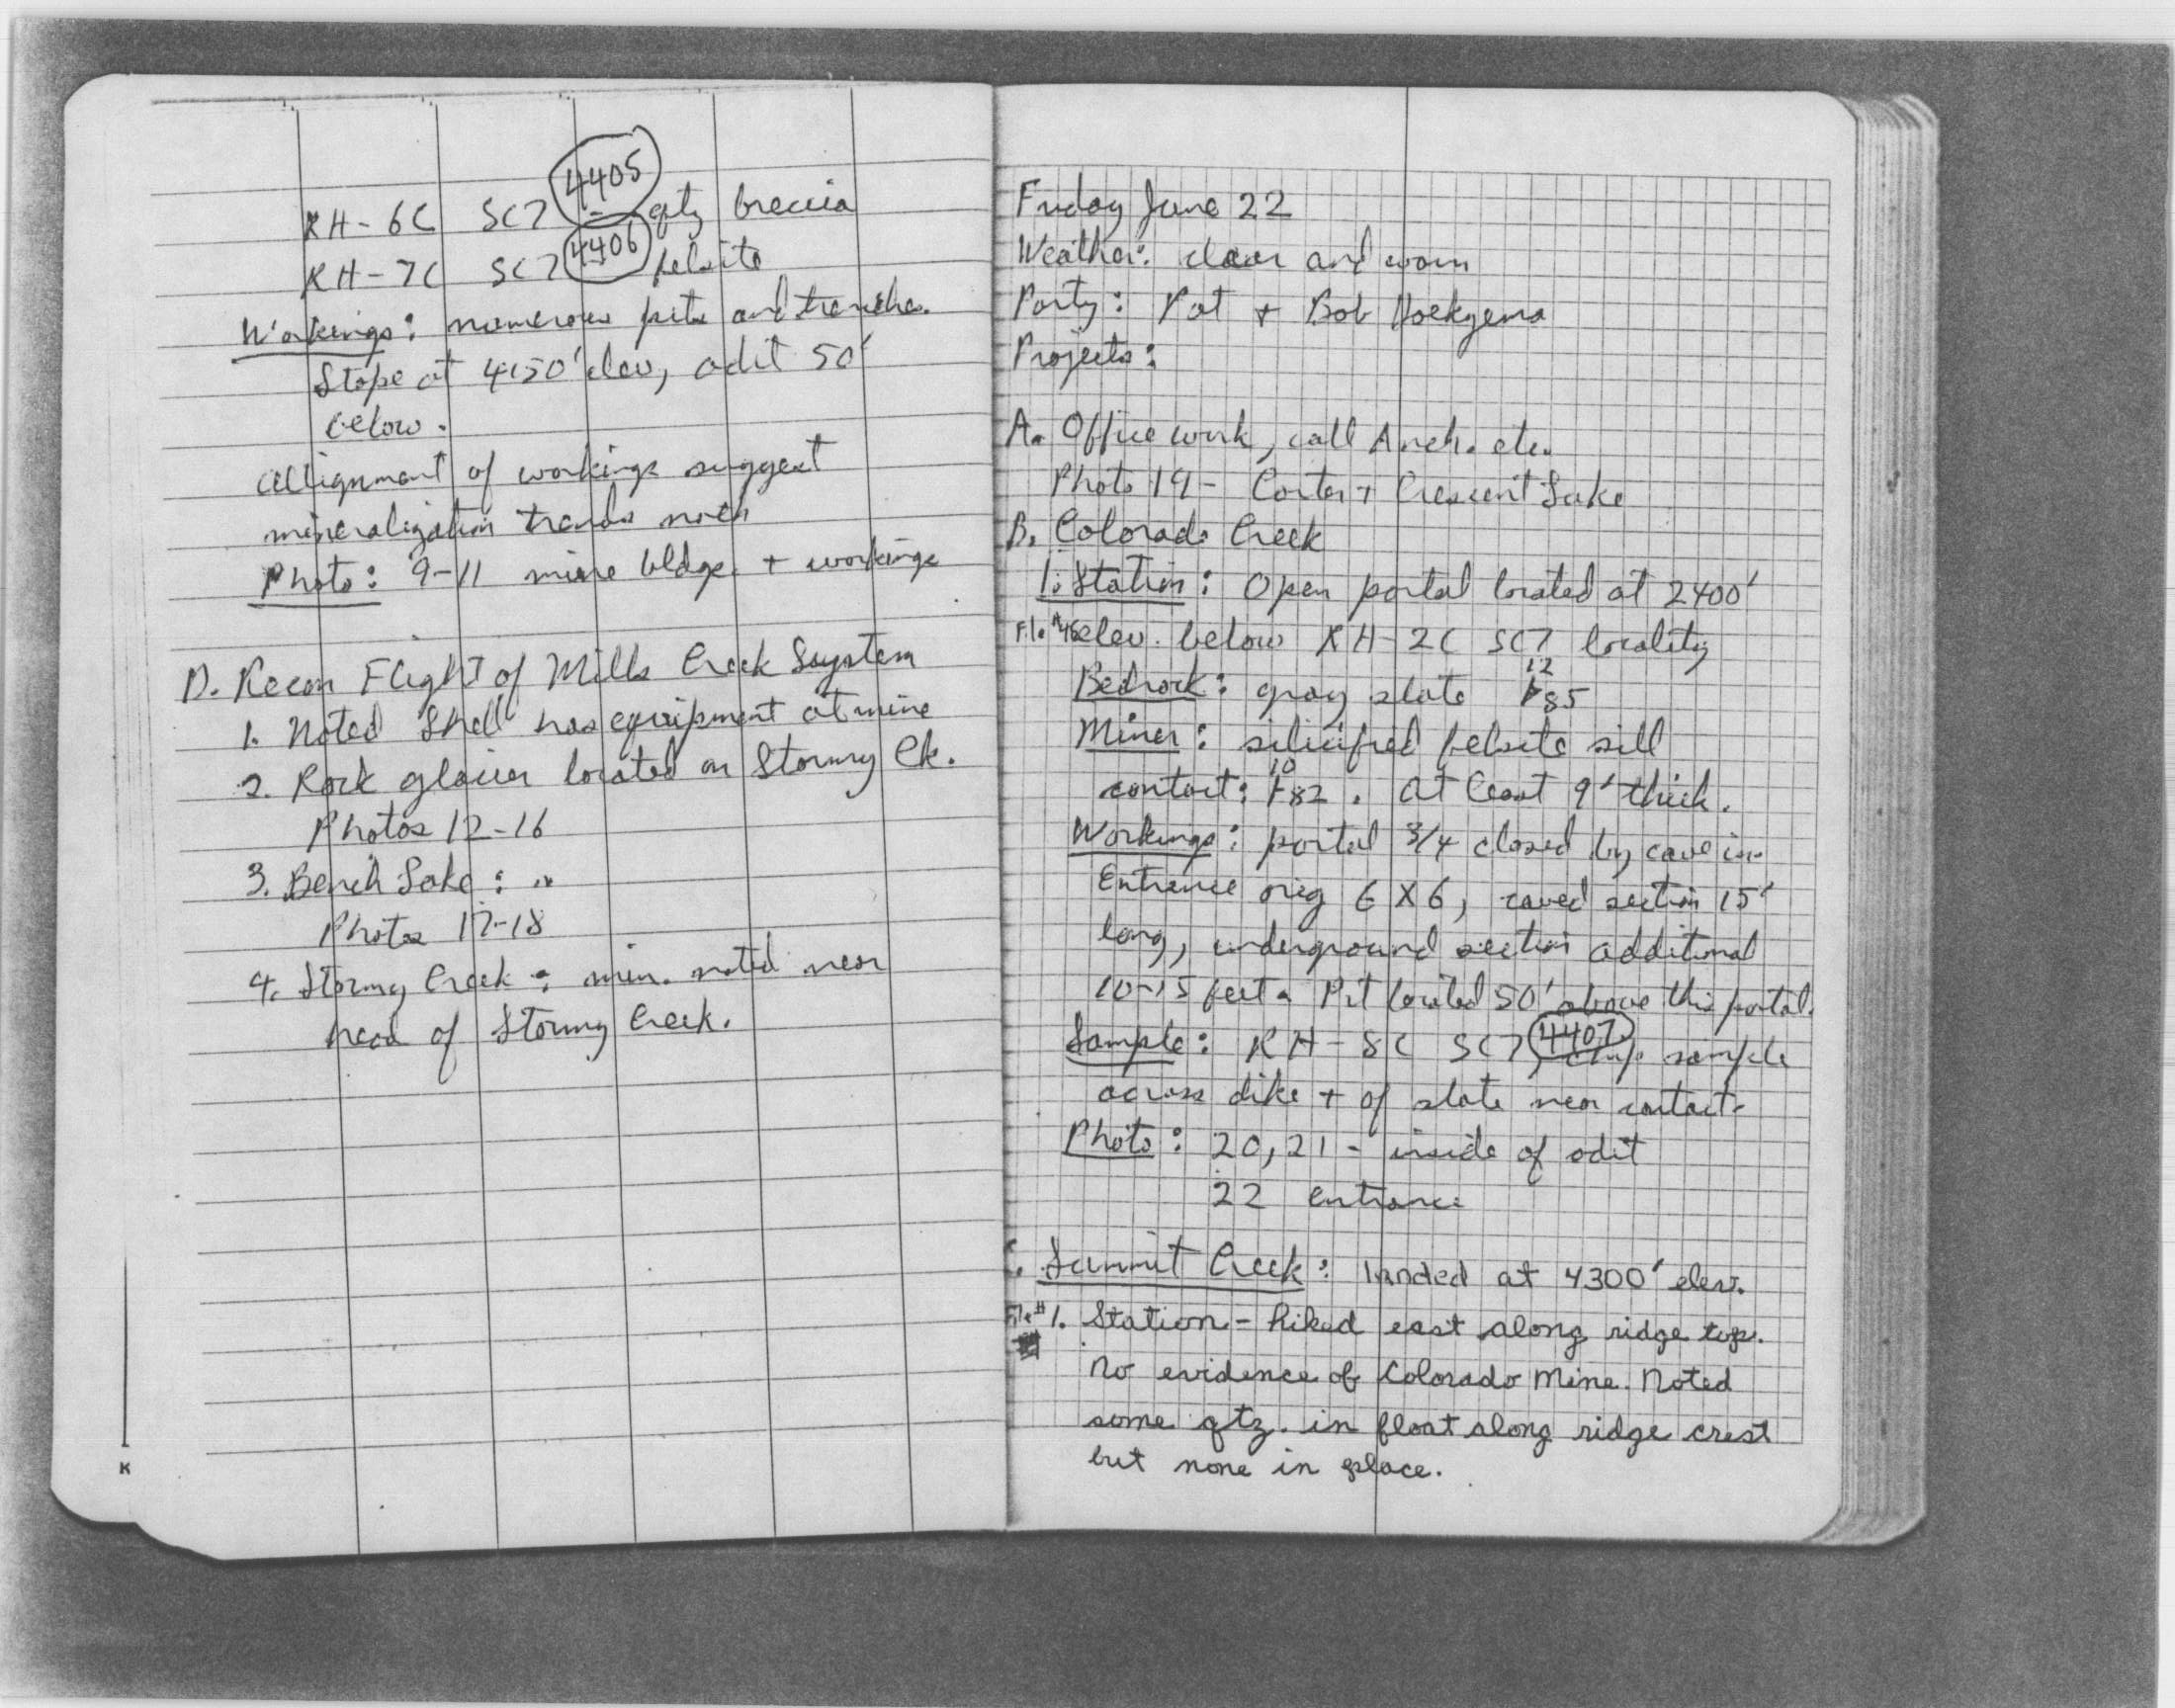 4405
RH-6C SC7 - qtz breccia
4406
RH-7C SC7 felsite
Workings: numerous pits and trenches.
Stope at 4150' elev, adit 50'
below.
allignment of workings suggest
mineralization trends north
Photo: 9-11 mine bldgs. + workings
D. Recon Flight of Mills Creek System
1. Noted Shell has equipment at mine
2. Rock glacier located on Stormy Ck.
Photos 12-16
3. Bench Lake:
Photos 17-18
4. Stormy Creek: min. noted near
head of Stormy Creek.
K
Friday June 22
Weather: clear and warm
Party: Pat + Bob Hoekzema
Projects:
A. Office work, call Anch. etc.
Photo 19 - Carter + Crescent Lake
B. Colorado Creek
1. Station: Open portal located at 2400'
elev. below RH-2C SC7 locality
Bedrock: gray slate 12 85
Miner: silicified felsite sill
contact: 10 82. At least 9' thick.
Workings: portal 3/4 closed by cave in.
Entrance orig 6 X 6, caved section 15'
long, underground section additional
10-15 feet. Pit located 50' above this portal.
Sample: RH-8C SC7, 4407 chip sample
across dike + of slate near contact.
Photo: 20, 21 - inside of adit
22 entrance
C. Summit Creek: landed at 4300' elev.
1. Station - hiked east along ridge top.
No evidence of Colorado Mine. Noted
some qtz. in float along ridge crest
but none in place.